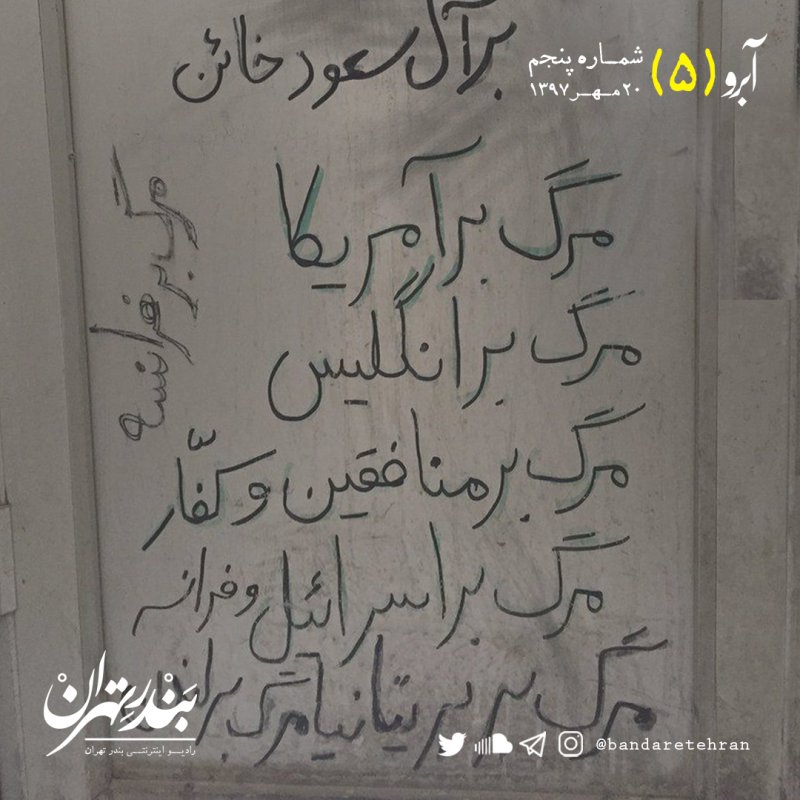 بر آل سعود خائن
آبرو (۵) شماره پنجم
۲۰ مهر ۱۳۹۷
مرگ بر آمریکا
مرگ بر انگلیس
مرگ بر منافقین و کفّار
مرگ بر اسرائیل و فرانسه
مرگ بر بریتانیا مرگ بر
مرگ بر فرانسه
بندرتهران
رادیو اینترنتی بندر تهران
@bandaretehran